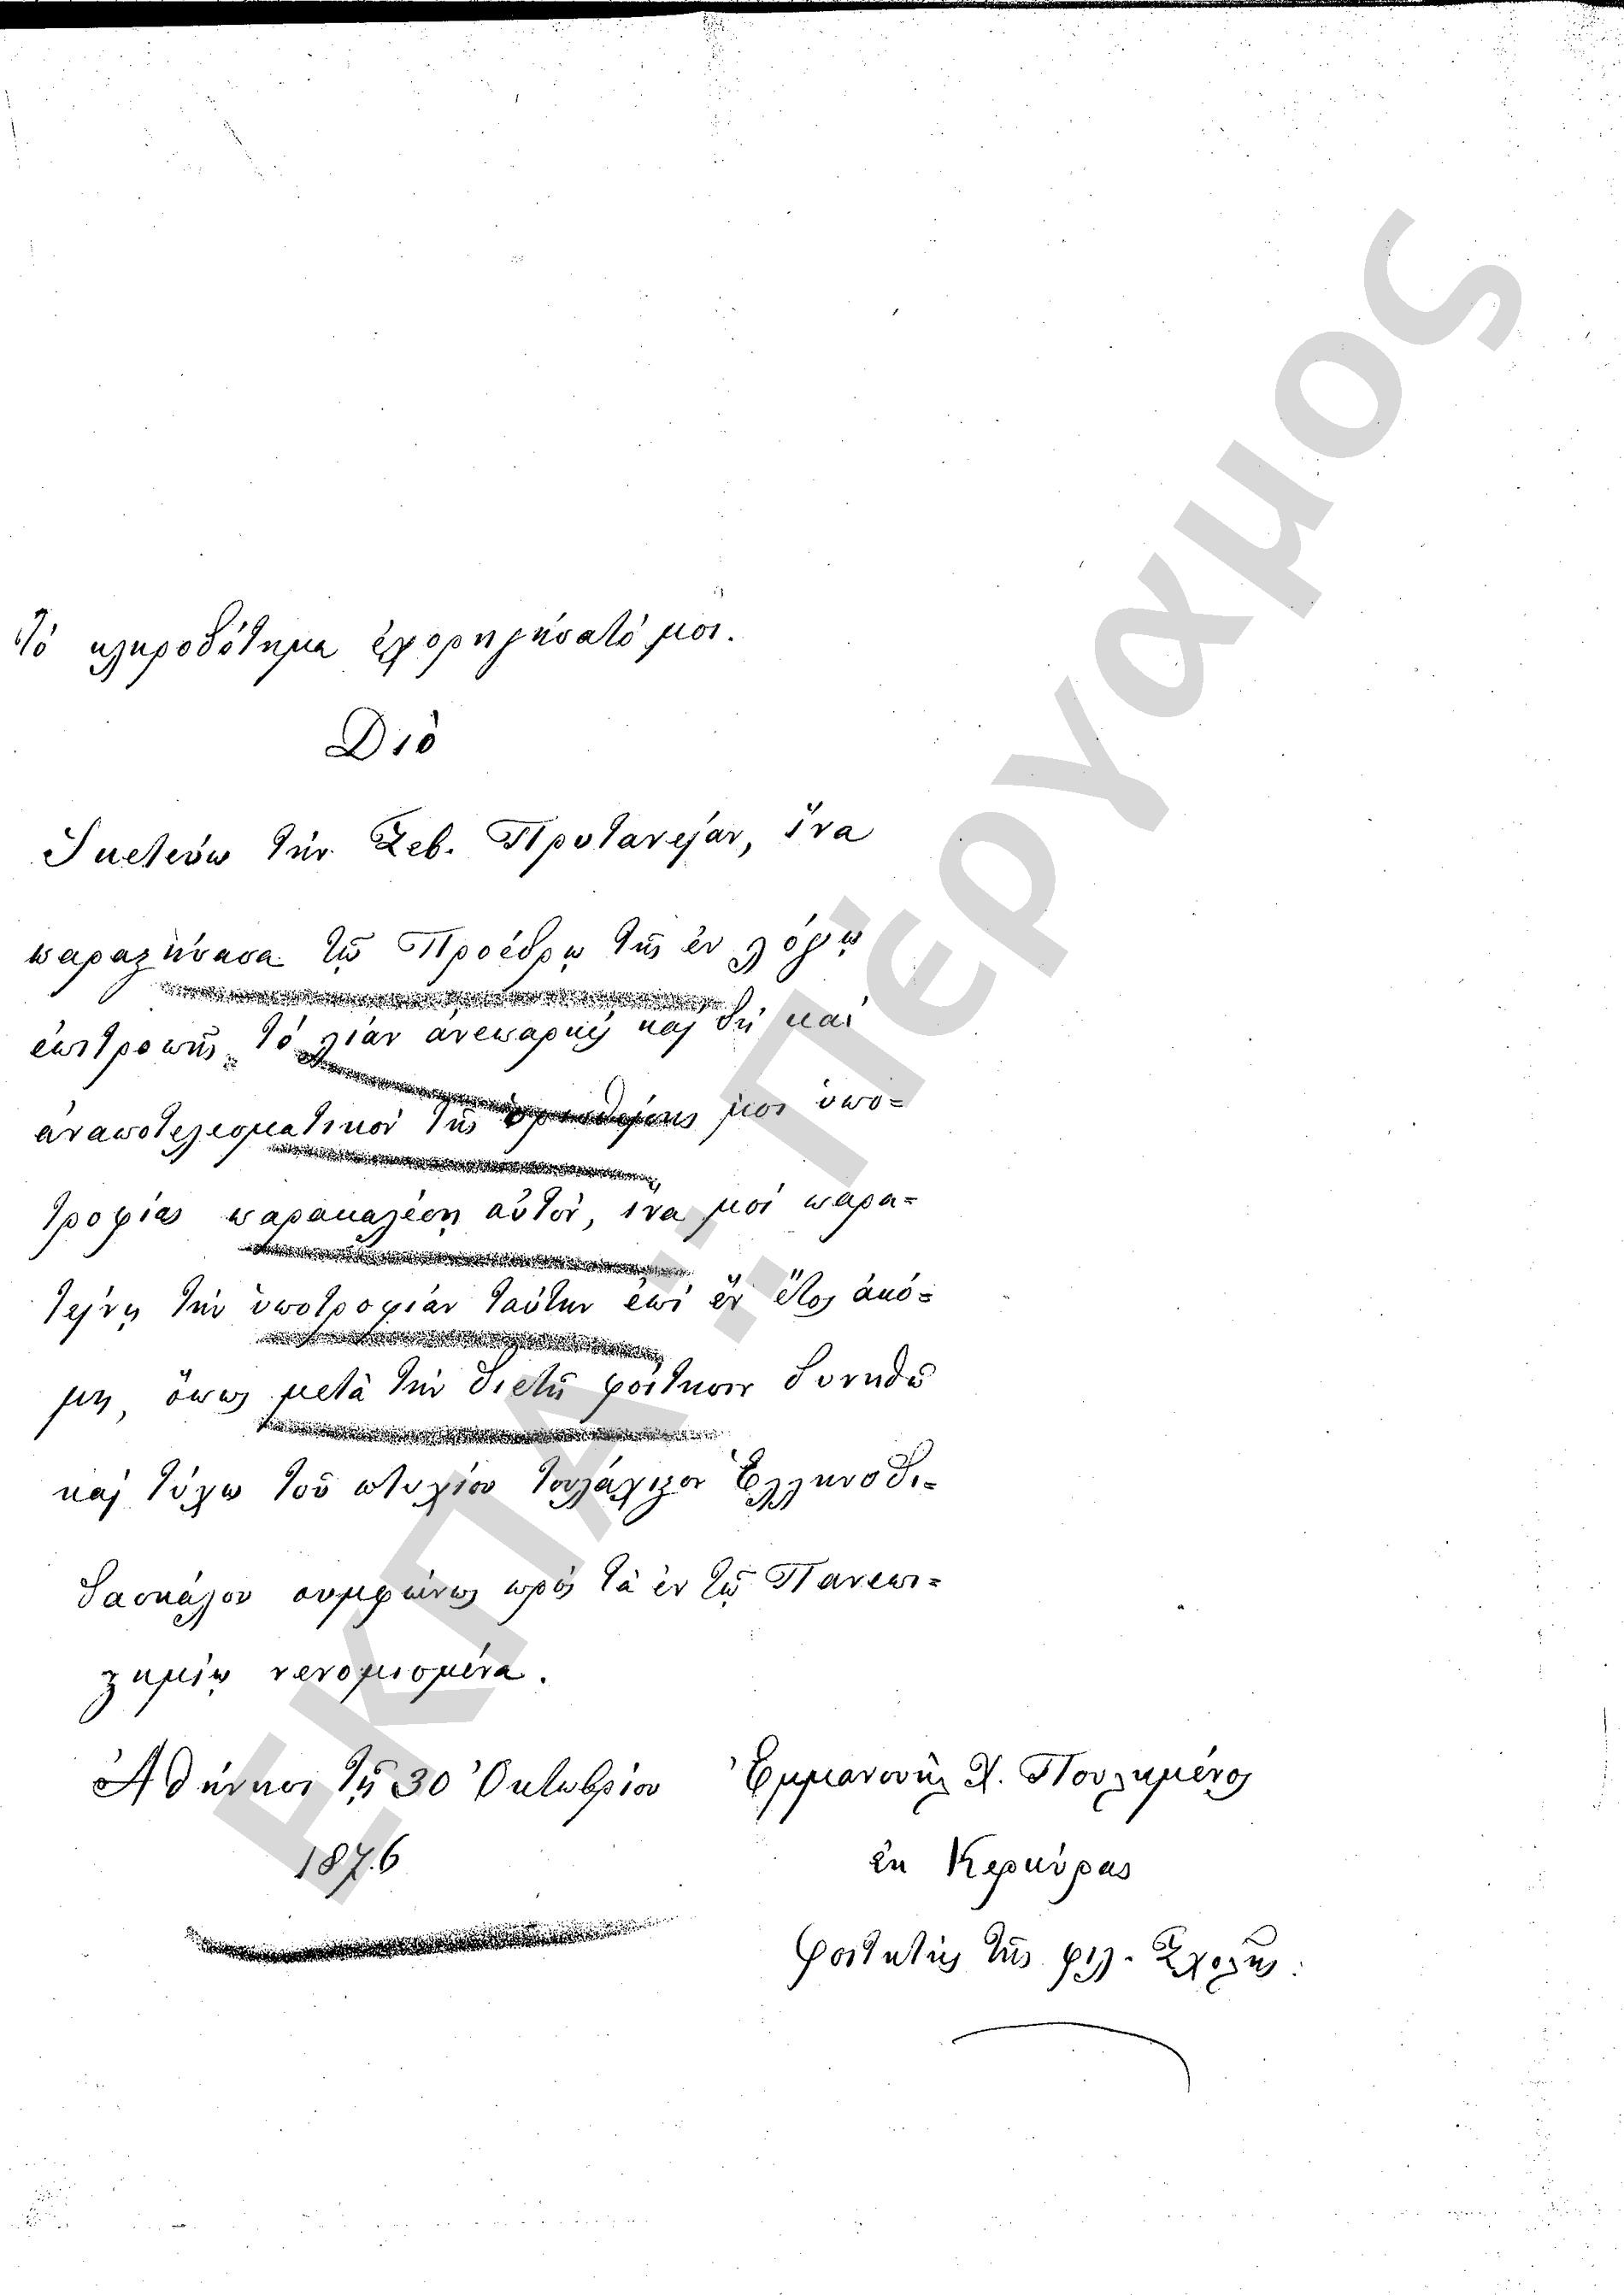 τὸ κληροδότημα ἐχορηγήσατό μοι.
Διὸ
Ἱκετεύω τὴν Σεβ. Πρυτανείαν, ἵνα
παραλήσασα τῷ Προέδρῳ τῆς ἐν λόγῳ
ἐπιτροπῆς τὸ λίαν ἀνεπαρκὲς καὶ δὴ καὶ
ἀναποτελεσματικὸν τῆς μοι ὑπο=
τροφίας παρακαλέσῃ αὐτὸν, ἵνα μοὶ παρα=
τείνῃ τὴν ὑποτροφίαν ταύτην ἐπὶ ἓν ἔτος ἀκό=
μη, ὅπως μετὰ τὴν διετῆ φοίτησιν δυνηθῶ
καὶ τύχω τοῦ πτυχίου τοὐλάχιστον Ἑλληνοδι=
δασκάλου συμφώνως πρὸς τὰ ἐν τῷ Πανεπι=
στημίῳ νενομισμένα.
Ἀθήνησι τῇ 30 Ὀκτωβρίου
1876
Ἐμμανουὴλ Χ. Πουλημένος
ἐκ Κερκύρας
φοιτητὴς τῆς φιλ. Σχολῆς.
ΕΚΠΑ:: Πέργαμος